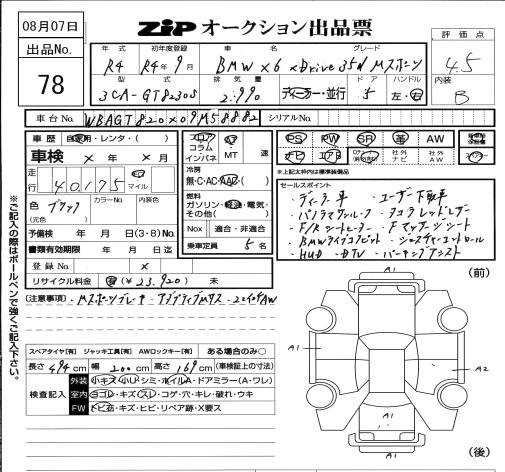 08月07日
ZIP オークション出品票
出品No.
78
評価点
4.5
内装
B
年式 初年度登録 車名 グレード
R4 R4年9月 BMW X6 xDrive35d Mスポーツ
型式 排気量 ドア ハンドル
3CA-GT8230S 2,990 ディーラー・並行 5 左・右
車台No. WBAGT820X09M58882 シリアルNo.
車歴 自家用・レンタ・( )
車検 × 年 × 月
走行 40,175 km マイル
色 ブラック カラーNo. 内装色
(元色)
予備検 年 月 (3・8)No.
書類有効期限 年 月 日迄
登録No. ×
リサイクル料金 有(¥23,920) 未
フロア コラム インパネ
AT MT 速
冷房
無・C・AC・AAC・( )
燃料
ガソリン・軽油・電気・その他( )
Nox 適合・非適合
乗車定員 5名
PS PW SR 革 AW
ナビ エアB 社外ナビ 社外AW
※上記太枠内は標準装備品
セールスポイント
・ディーラー車 ・ユーザー下取車
・パノラマサンルーフ ・タコラレッドレザー
・F/Rシートヒーター ・Fマッサージシート
・BMWライブコクピット ・ジェスチャーコントロール
・HUD ・DTV ・パーキングアシスト
(注意事項) ・Mスポーツブレーキ ・アダプティブMサス ・22インチAW
スペアタイヤ[有] ジャッキ工具[有] AWロックキー[有] ある場合のみ○
長さ 494cm 幅 200cm 高さ 169cm (車検証上の寸法)
検査記入
外装 小キズ・小凹・シミ・ホイルA・ドアミラー(A・ワレ)
室内 ヨゴレ・キズ・スレ・コゲ・穴・キレ・破れ・ウキ
FW トビ石・キズ・ヒビ・リペア跡・X要ス
(前)
A1
A1
A2
A1
A1
(後)
※ご記入の際はボールペンで強くご記入下さい。